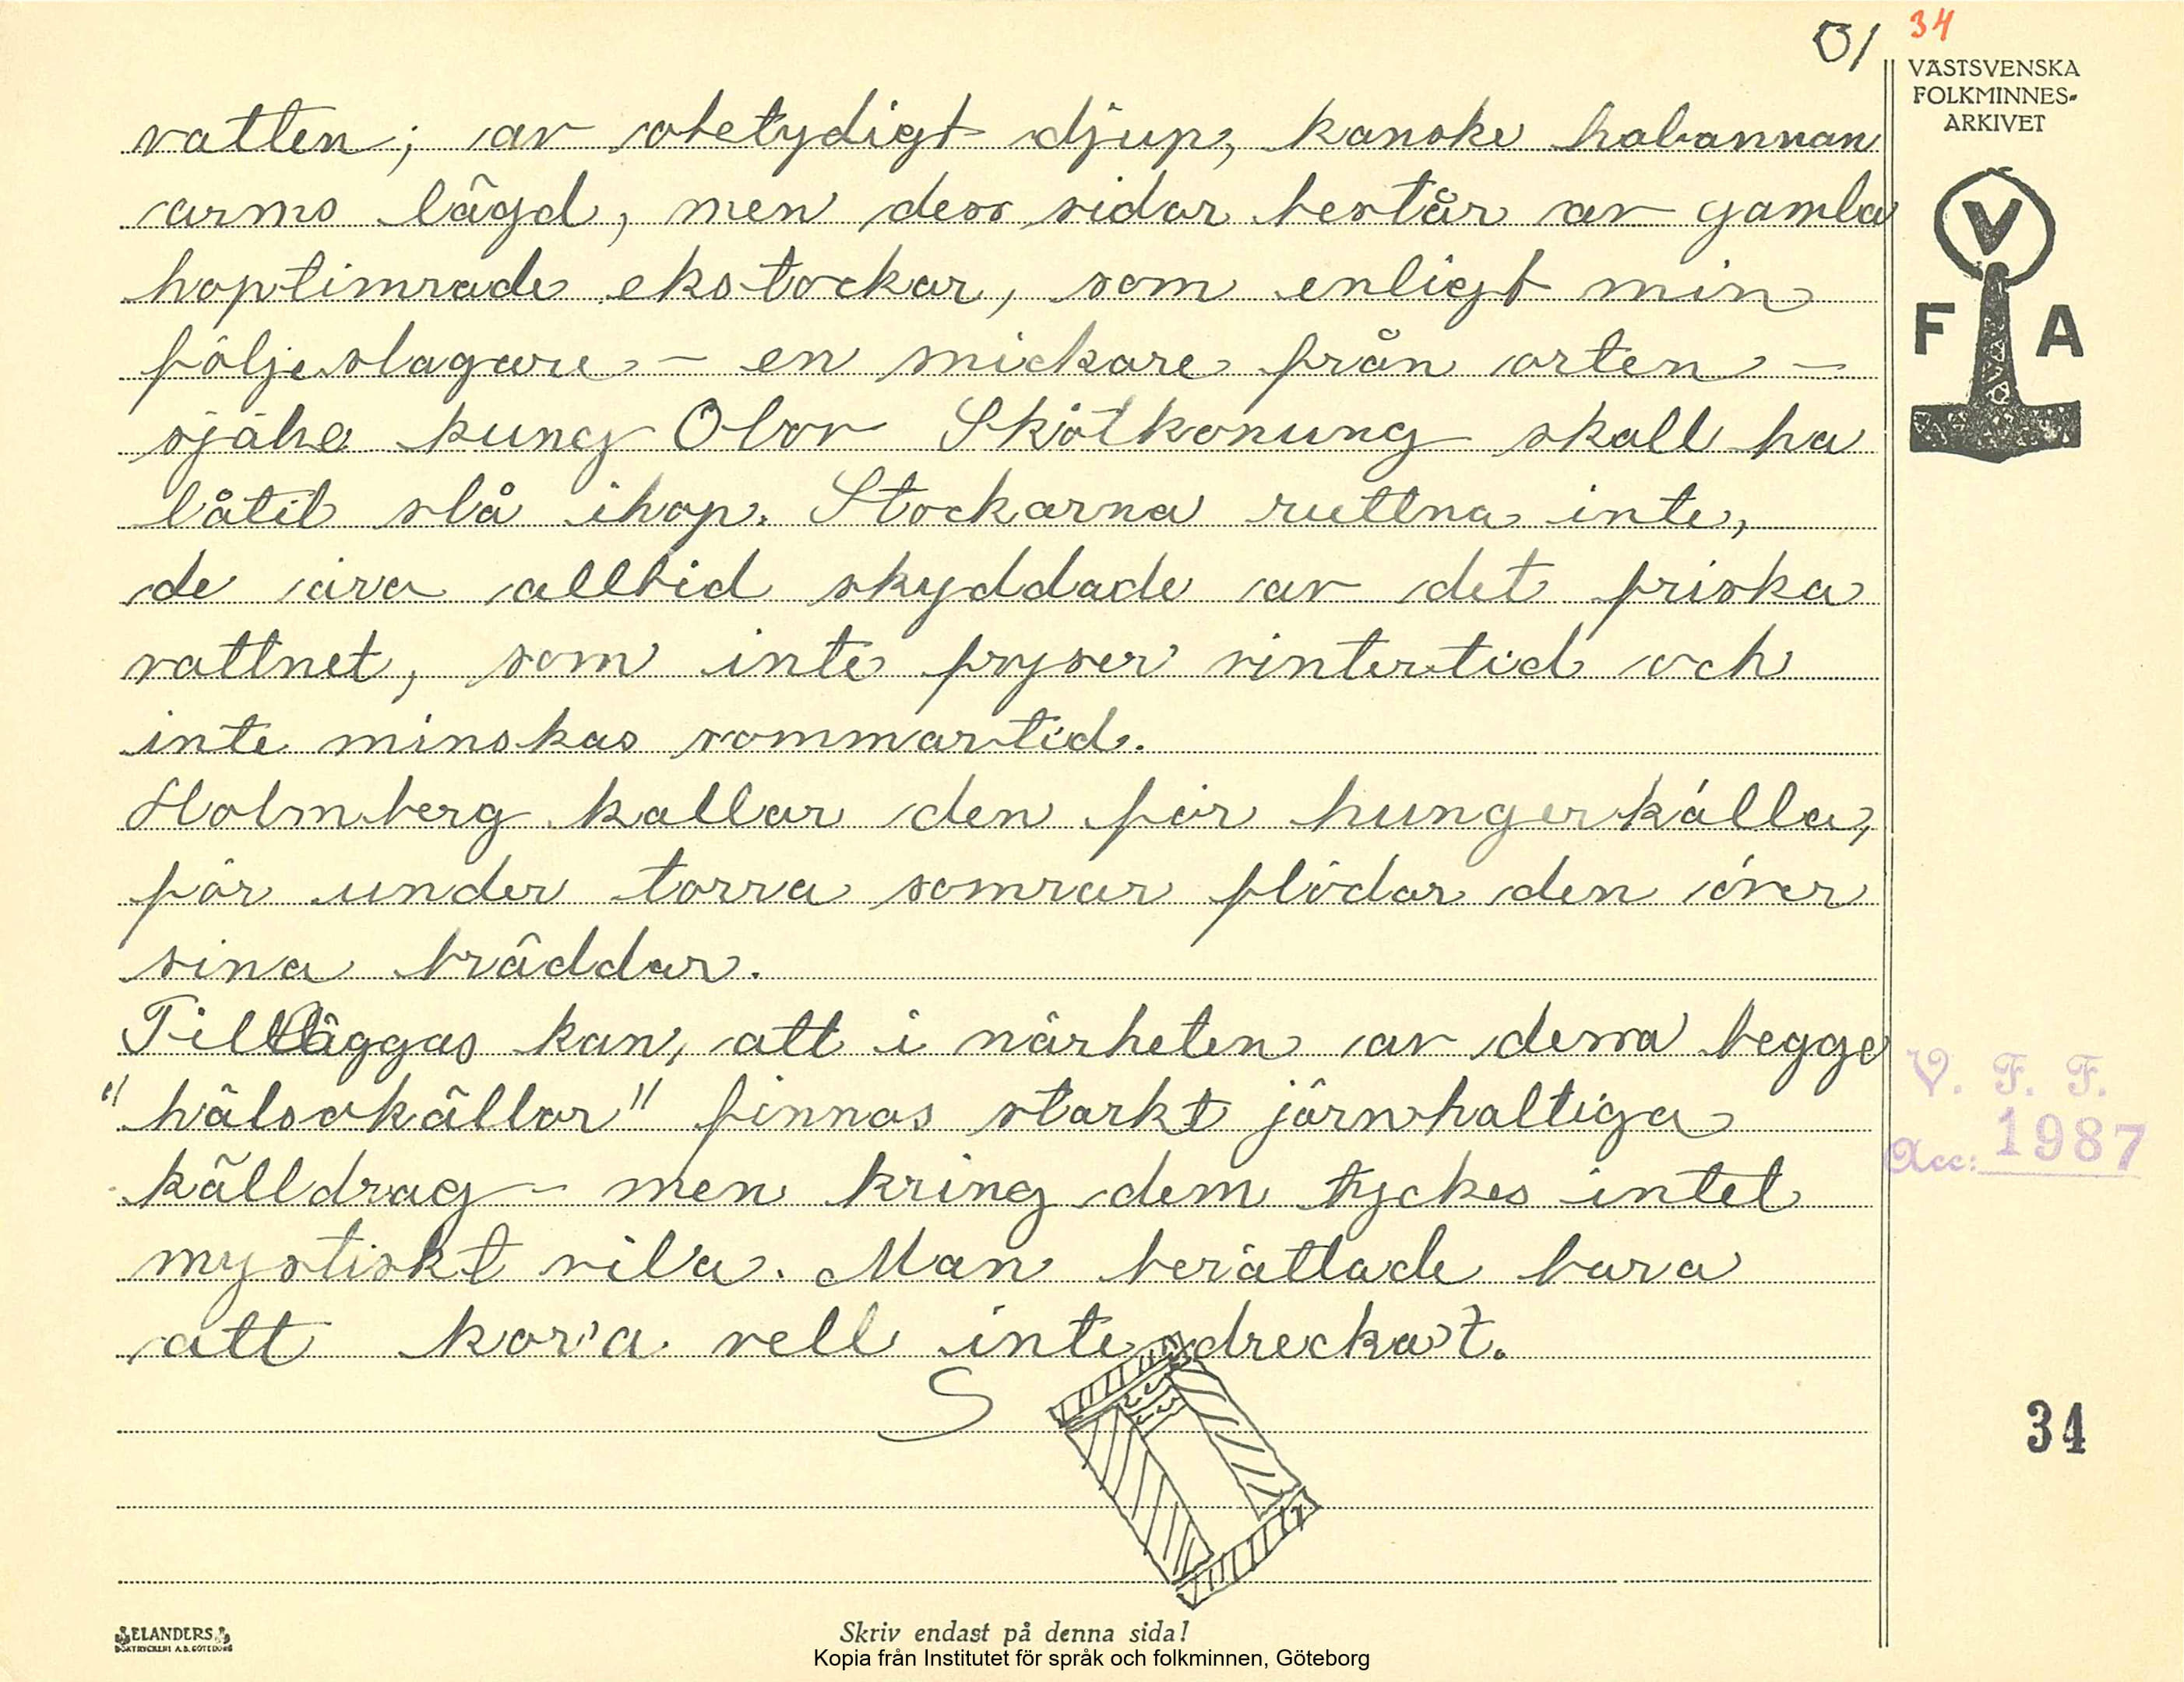 34
VÄSTSVENSKA
FOLKMINNES-
ARKIVET
V
F A
vatten; av obetydigt djup, kanske halvannan
arms lägd, men dess sidor består av gamla
hoptimrade ekstockar, som enligt min
följeslagare - en snickare från orten -
själve kung Olov Skötkonung skall ha
låtit slå ihop. Stockarna ruttna inte,
de äro alltid skyddade av det friska
vattnet, som inte fryser vintertid och
inte minskas sommartid.
Holmberg kallar den för hungerkälla,
för under torra somrar flödar den över
sina bräddar.
Tilläggas kan, att i närheten av dessa begge
"hälsokällor" finnas starkt järnhaltiga
källdrag - men kring dem tyckes intet
mystiskt vila. Man berättade bara
att kor'a vell inte drecka't.
S
V. F. F.
Acc: 1987
34
ELANDERS
BOKTRYCKERI A.B. GÖTEBORG
Skriv endast på denna sida!
Kopia från Institutet för språk och folkminnen, Göteborg